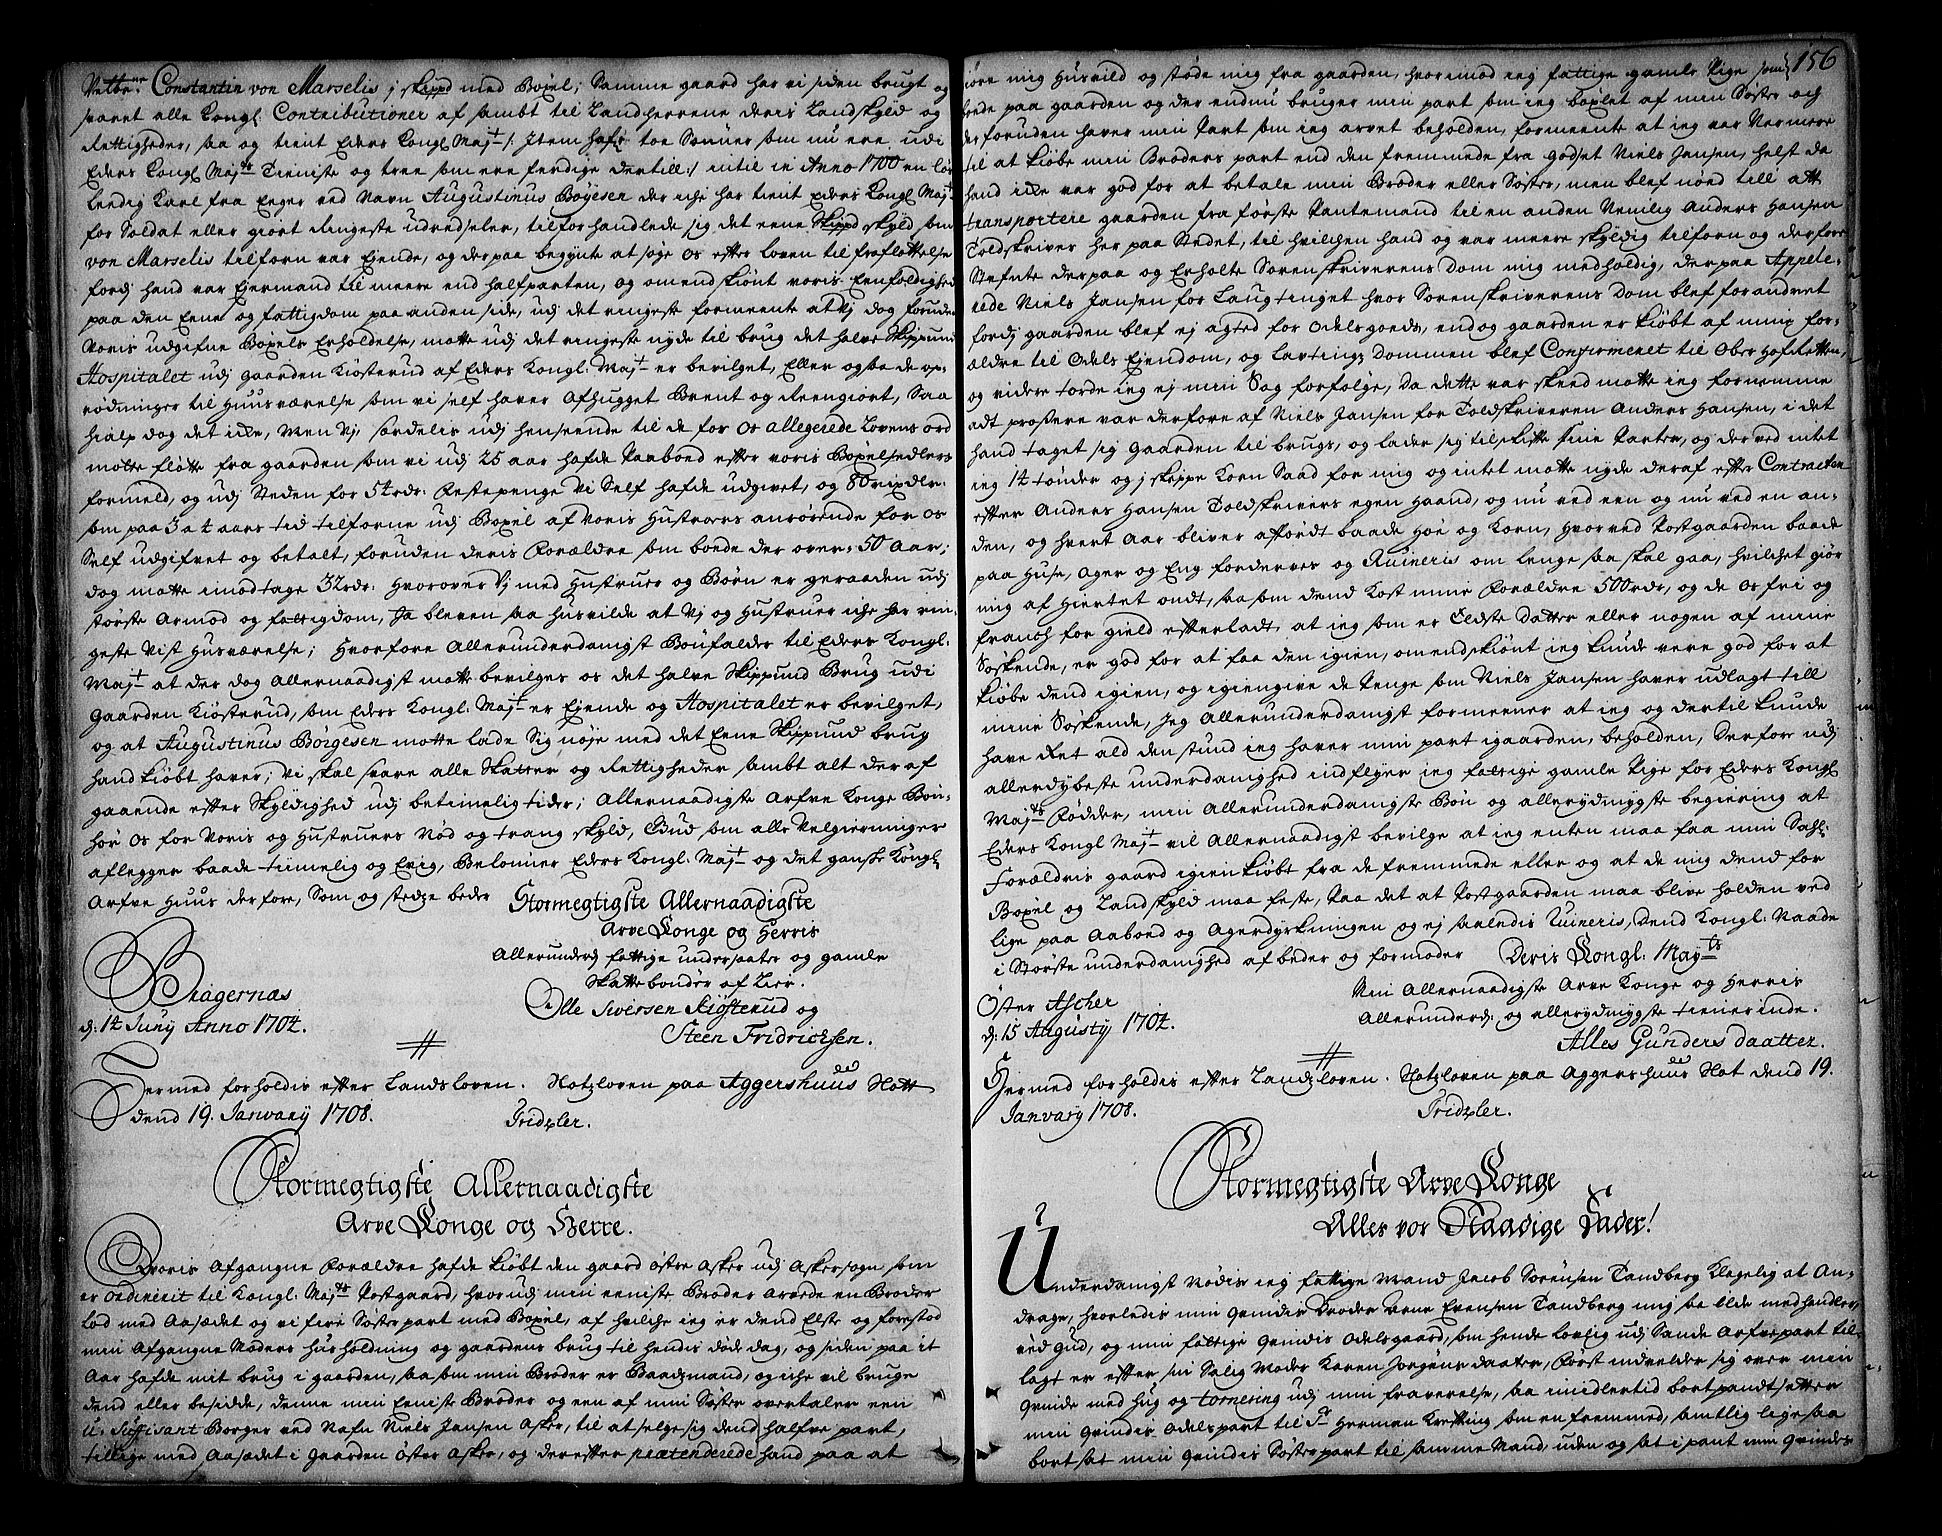 Velbr: Constantin von Marselis j skipd med Boxel; Samme gaard har vi siden brugt og
svaret alle Kongl: Contributioner af sambt til Landherrene deris Landskyld og
Rettigheder, saa og tient Eders Kongl Mayt /: Item hafr toe Sønner som nu ere udi
Eders Kongl Mayts Tieniste og tree som ere ferdige dertill :/ intil in Anno 1700 en
Lendig Karl fra Enger ved Navn Augustinus Böyesen der iche har tient Eders Kongl Mayt
for Soldat eller giort ringeste udredseler, tilforhandlede sig det eene Skippd skyld som
von Marselis tilforn var Ejende, og derpaa begynte at søge os efter loven til frafløttelse
fordj hand var Ejermand til meere end halfparten, og omendskiønt voris Eenfoldighed
paa den Eene og fattigdom paa anden side, udj det ringeste formeente at vj dog foruden
Voris udgifne Boxels Erholdelse, motte udj det ringeste nyde til brug det halve Skippund
Hospitalet udj gaarden Kiøsterud af Eders Kongl: Mayt er bevilget, Eller ogsaa de
rødninger til Huusværelse som vi self haver Afhugget Brent og Reengiort, Saa
hialp dog det iche, Men Vj, særdelis udj henseende til de for os allegerede Lovens ord
motte fløtte fra gaarden som vi udj 25 aar hafde paaboed efter voris Boxelsedlers
formeld, og udj steden for 54 rdr: Festepenge Vi Self hafde udgivet, og 80 rixdlr:
som paa 3 a 4 aars tid tilforne udj Boxel af Voris Hustroers anrørende for os
Self udgifvet og betalt, foruden deris Forældre som boede der over: 50 Aar;
dog motte imodtage 32 rdr: Hvorover Vj med Hustruer og Børn er geraaden udj
største Armod og fattigdom, Ja bleven saa husvilde at Vj og Hustruer iche har rin-
geste Vist Husværelse; Hvorfore Allerunderdanigst Bønfalder til Eders Kongl:
Mayt at der dog Allernaadigst motte bevilges os det halve Skippund Brug udi
Gaarden Kiøsterud, som Eders Kongl: Mayt er Ejende og Hospitalet er bevilget,
og at Augustinus Börgesen motte lade Sig nøje med det Eene Skippund brug
hand kiøbt haver, Vi skal svare alle Skatter og Rettigheder sambt alt der af
gaaende efter Skyldighed udj betimelig tider; Allernaadigste Arfve Konge Bøn-
hør os for Voris og Hustruers Nød og trang skyld, Gud som alle Velgierninger
aflegger baade timelig og Evig, Belønner Eders Kongl: Mayt og det gansche Kongl:
Arfve Huus derfore, Som og stedze beder
Stormegtigste Allernaadigste
Arve Konge og Herris
Allerunderd: fattige undersaatter og gamle
Skattebønder af Lier.
Bragernæs
d: 14 Juny Anno 1704.
Olle Siversen Kiøsterud og
Steen Fridrichsen.
Hermed forholdis efter Landsloven. Slotzloven paa Aggershuus Slott
dend 19. January 1708.
Tridzler.
Stormegtigste Allernaadigste
Arve Konge og Herre.
Voris Afgangne Forældre hafde kiøbt den gaard østre Asker udj Askersogn som
er ordinerit til Kongl: Mayts Postgaard, hvor udj min eeniste Broder Arvede en Broder
lod med Aasædet og vi fire Søsterpart med Boxel, af hvilche ieg er dend Elste og forestod
min Afgangne Moders hus holdning og gaardens brug til hendis døde dag, og siden paa it
Aar hafde mit brug i gaarden, saa som min Broder er Baadsmand, og iche vil bruge
dend eller besidde, denne min Eeniste Broder og een af min Søster overtaler een
u-suffisant Borger ved Nafn Niels Jansen Asker, til at selge sig dend halfve part,
tillige med Aasædet i Gaarden øster Asker, og derefter prætenderede hand paa at
156
giøre mig Husvild og støde mig fra gaarden, hvorimod ieg fattige gamle Pige som
boede paa gaarden og der endnu bruger min part som ieg boxlet af min Søster och
desforuden haver min Part som ieg arvet beholden, formeente at ieg var Nermere
til at kiøbe min Broders part end den fremmede fra godset Niels Jansen, helst da
hand iche var god for at betale min Broder eller Søster, men blef nød till at
transportere gaarden fra første Pantemand til en anden Nemlig Anders Hansen
Toldskriver her paa Stedet, til hvilchen hand og var meere skyldig tilforn og derfore
Stefnte derpaa og Erholte Sorenskriverens Dom mig medholdig, derpaa Appele-
rede Niels Jansen for Laugtinget hvor Sorenskriverens Dom blef forandret
fordj gaarden blef ej agted for Odelsgoeds, end og gaarden er kiøbt af mine for-
ældre til Odels Ejendom, og Lavtings Dommen blef Confirmeret til Ober Hofretten,
og videre torde ieg ej min Sag forfølge, Da dette var skeed motte ieg fornemme
adt prossere var derfore af Niels Jansen for Toldskriveren Anders Hansen, i det
hand taget sig Gaarden til brugs, og lader sig tilskifte sine Parter, og der ved intet
ieg 14 tønder og j skeppe Korn Saad for mig og intet motte nyde deraf efter Contracten
efter Anders Hansen Toldskrivers egen Haand, og nu ved een og nu ved en an-
den, og hvert Aar bliver affordt baade Høe og Korn, Hvorved Postgaarden baade
paa Huse, Ager og Eng forderves og Ruineris om lenge saa skal gaa, hvilchet giør
mig af Hiertet ondt, saa som dend kost mine Forældre 500 rdr, og de os fri og
franch for gield efterladt, at ieg som er Ældste Datter eller nogen af mine
Søskende, er god for at faa den igien, omendskiønt ieg kunde vere god for at
kiøbe dend igien, og igiengive de Penge som Niels Jansen haver udlagt till
mine Søskende, Jeg Allerunderdanigst formeener at ieg og dertil kunde
have Ret ald den stund ieg haver min part i gaarden, beholden, Derfore udj
allerdybeste underdanighed indflyer ieg fattige gamle Pige for Eders Kongl
Mayts Fødder, min Allerunderdanigste Bøn og allerydmygste begiering at
Eders Kongl Mayt vil Allernaadigst bevilge at ieg enten maa faa min Sahl:
Forældris gaard igienkiøbt fra de fremmede eller og at de mig dend for
Boxel og Landskyld maa feste, Paa det at Postgaarden maa blive holden ved
lige paa Aaboed og Agerdyrkningen og ej saaledis Ruineris, dend Kongl: Naade
i Største underdanighed af beder og formoder
Deris Kongl: Mayts
Min Allernaadigste Arve Konge og Herris
Allerunderd: og allerydmygste tienerinde.
Øster Ascher
d: 15 Augusty 1704.
Alles Gunders daatter.
Hermed forholdis efter Landzloven. Slotzloven paa Aggershuus Slot dend 19.
January 1708.
Tridzler.
Stormegtigste Arve Konge
Alles vor Naadige Fader!
Underdanigst Nødis ieg fattige Mand Jacob Sørensen Tandberg Klagelig at An-
drage, hvorledis min Qvindis Broder Arne Evensen Tandberg mig saa ilde medhandler,
ved gud, og min fattige Qvindis Odelsgaard, som hende lovlig udj Sande Arfvepart til-
lagt er efter sin Salig Moder Karen Jørgens daater, først indvelder sig over min
Qvinde med hug og tornering udj min fraverelse, saa imidlertid bortpandtsetter
min Qvindis Odelspart til Sr Herman Krefting som en fremmed, samtlig ligesaa
bortsat min Qvindis Søsterpart til samme Mand, uden og sat i pant min Qvindes